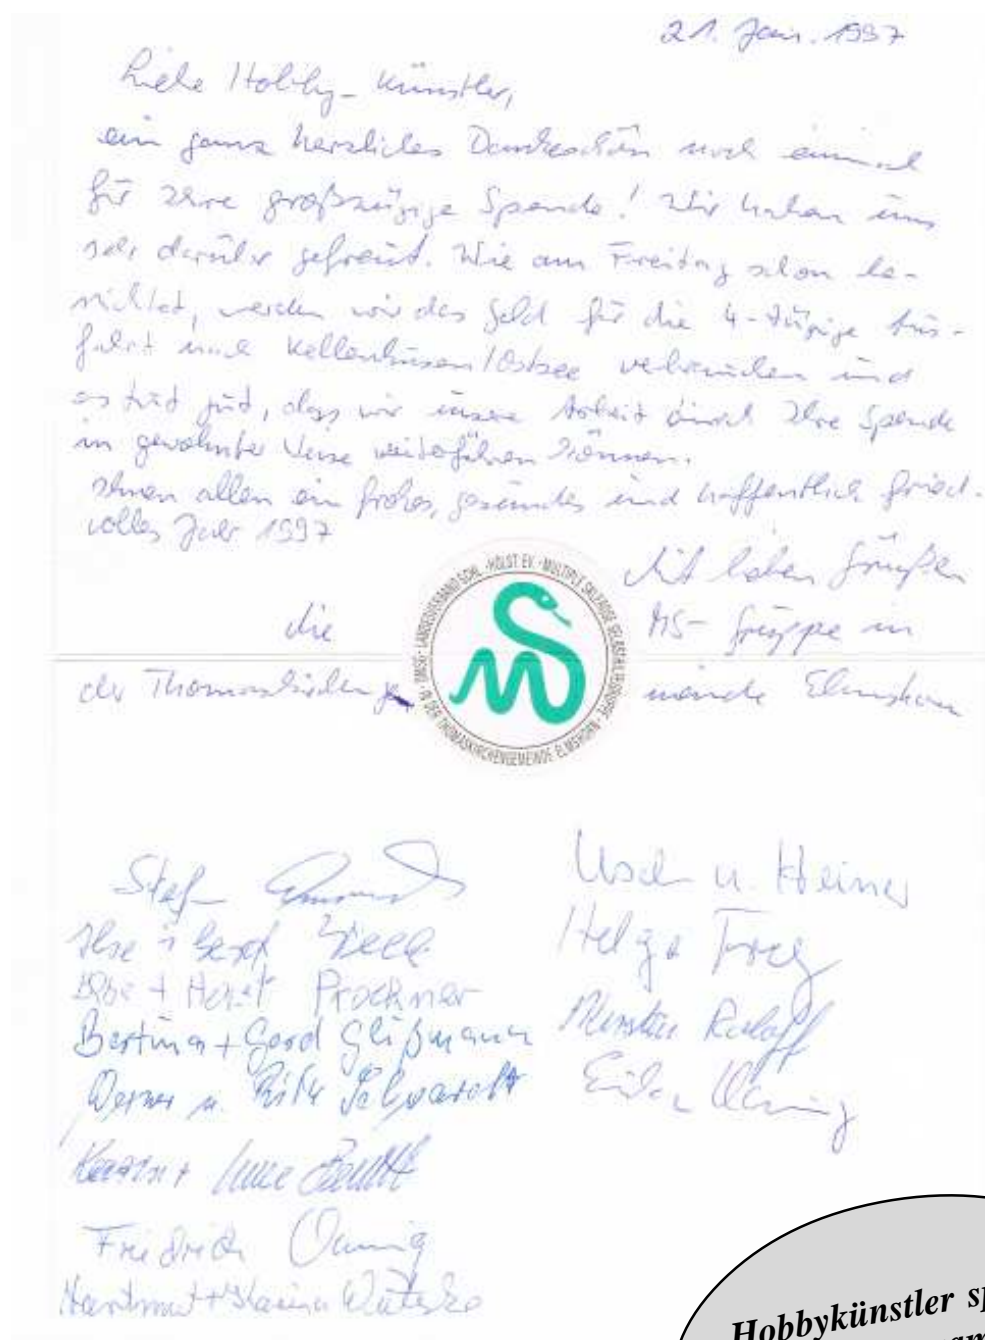 21. Jan. 1997
Liebe Hobby-Künstler,
ein ganz herzliches Dankeschön noch einmal
für Ihre großzügige Spende! Wir haben uns
sehr darüber gefreut. Wie am Freitag schon be-
richtet, werden wir das Geld für die 4-tägige Aus-
fahrt nach Kellenhusen/Ostsee verbrauchen und
es tut gut, dass wir unsere Arbeit durch Ihre Spende
in gewohnter Weise weiterführen können.
Ihnen allen ein frohes, gesundes und hoffentlich fried-
volles Jahr 1997
Mit lieben Grüßen
die MS-Gruppe in
der Thomaskirchenge meinde Elmshorn
DMSG · LANDESVERBAND SCHL.-HOLST EV. · MULTIPLE SKLEROSE SELBSTHILFEGRUPPE · IN DER THOMASKIRCHENGEMEINDE ELMSHORN
Stefan
Ilse
+ Horst Prochner
+ Gerd Glißmann
Werner u.
Karin +
Friedrich
Hartmut +
u. Heiner
Helga
Hobbykünstler